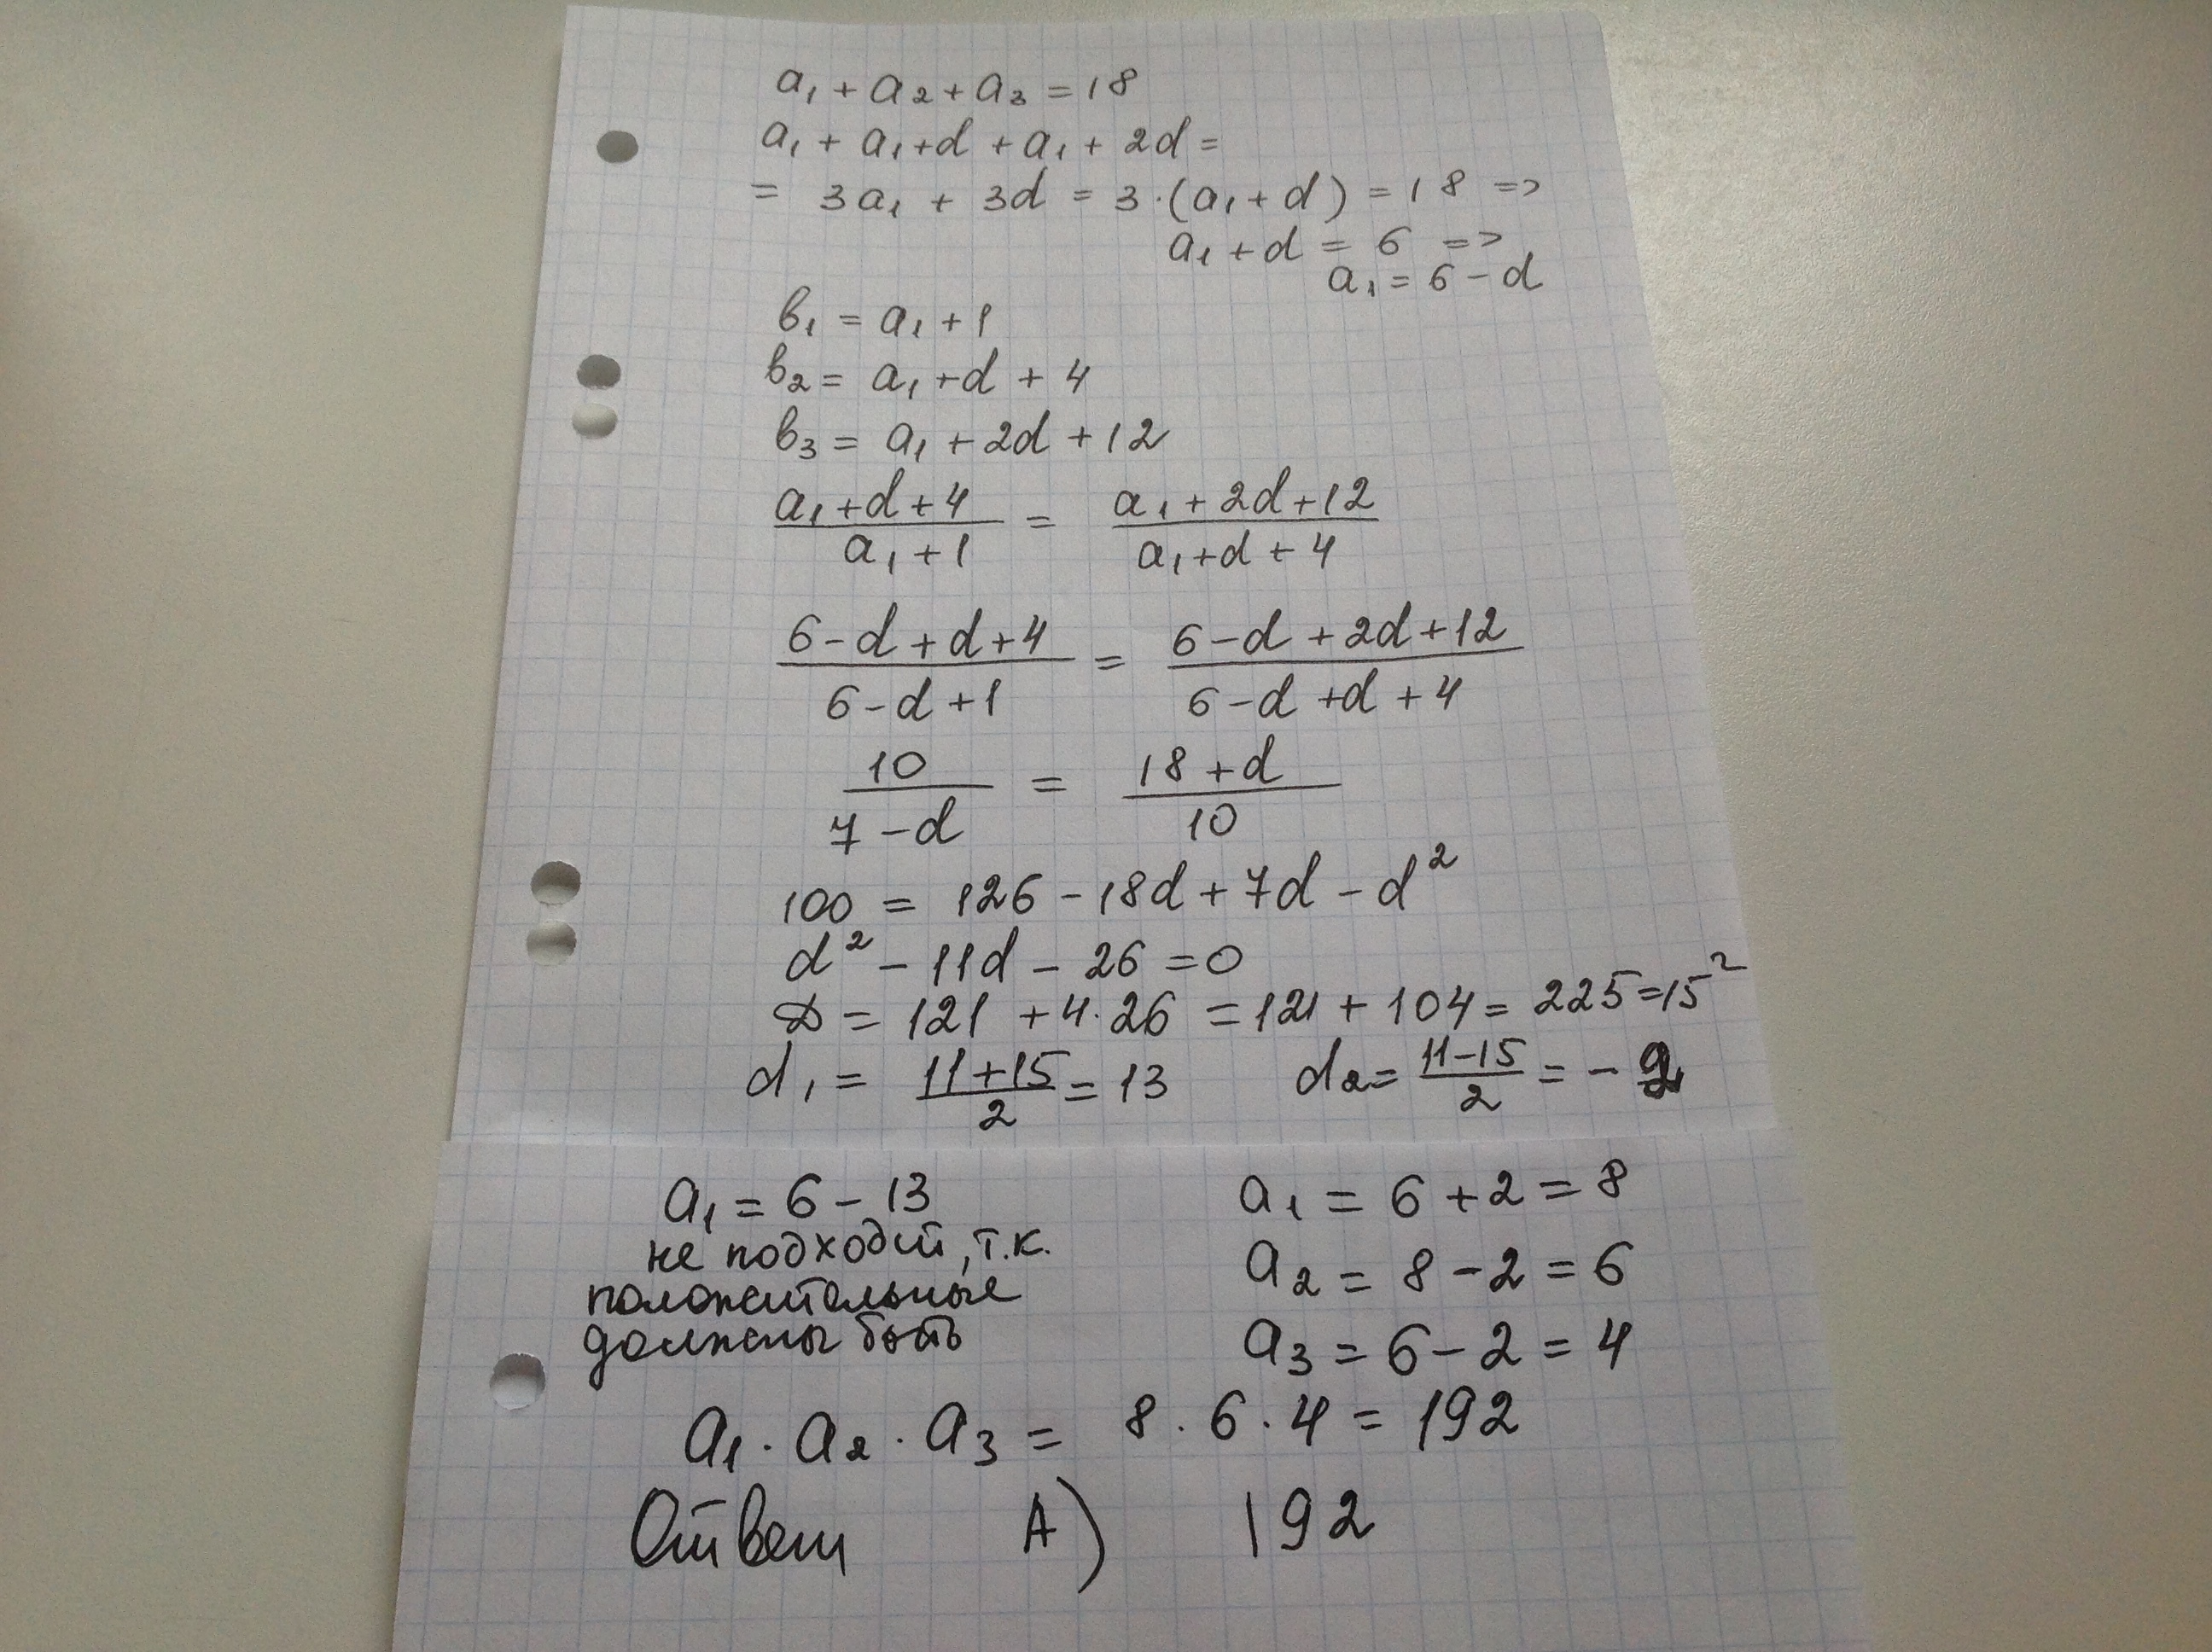 a₁ + a₂ + a₃ = 18
a₁ + a₁ + d + a₁ + 2d =
= 3a₁ + 3d = 3·(a₁ + d) = 18 =>
a₁ + d = 6 =>
a₁ = 6 - d
b₁ = a₁ + 1
b₂ = a₁ + d + 4
b₃ = a₁ + 2d + 12
(a₁ + d + 4)/(a₁ + 1) = (a₁ + 2d + 12)/(a₁ + d + 4)
(6 - d + d + 4)/(6 - d + 1) = (6 - d + 2d + 12)/(6 - d + d + 4)
10/(7 - d) = (18 + d)/10
100 = 126 - 18d + 7d - d²
d² - 11d - 26 = 0
D = 121 + 4·26 = 121 + 104 = 225 = 15²
d₁ = (11 + 15)/2 = 13 d₂ = (11 - 15)/2 = - 2
a₁ = 6 - 13 a₁ = 6 + 2 = 8
не подходит, т.к.
положительные a₂ = 8 - 2 = 6
должны быть a₃ = 6 - 2 = 4
a₁ · a₂ · a₃ = 8 · 6 · 4 = 192
Ответ А) 192